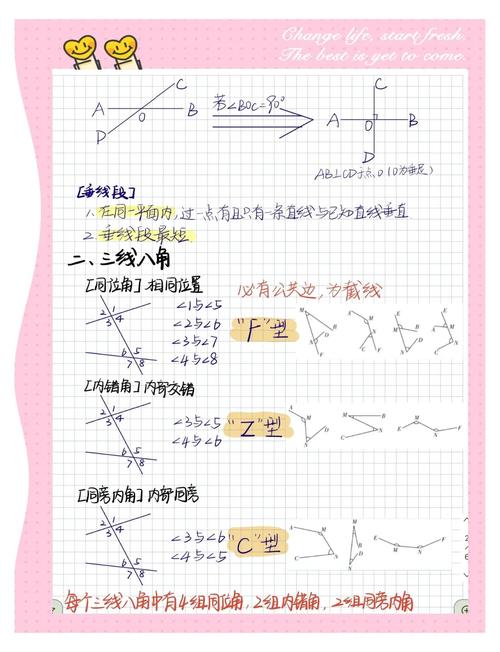 Change life, start fresh.
The best is yet to come.
A B C D O
若∠BOC=90°
A B C D O
AB⊥CD于点O(O为垂足)
[垂线段]
1. 在同一平面内,过一点有且只有一条直线与已知直线垂直
2. 垂线段最短
二、三线八角
[同位角] 相同位置
必有公共边,为截线
2 1
3 4
6 5
7 8
∠1与∠5
∠2与∠6
∠3与∠7
∠4与∠8
"F"型
[内错角] 内部交错
2 1
3 4
6 5
7 8
∠3与∠5
∠4与∠6
"Z"型
[同旁内角] 内部同旁
2 1
3 4
6 5
7 8
∠3与∠6
∠4与∠5
"C"型
每个三线八角中有4组同位角,2组内错角,2组同旁内角